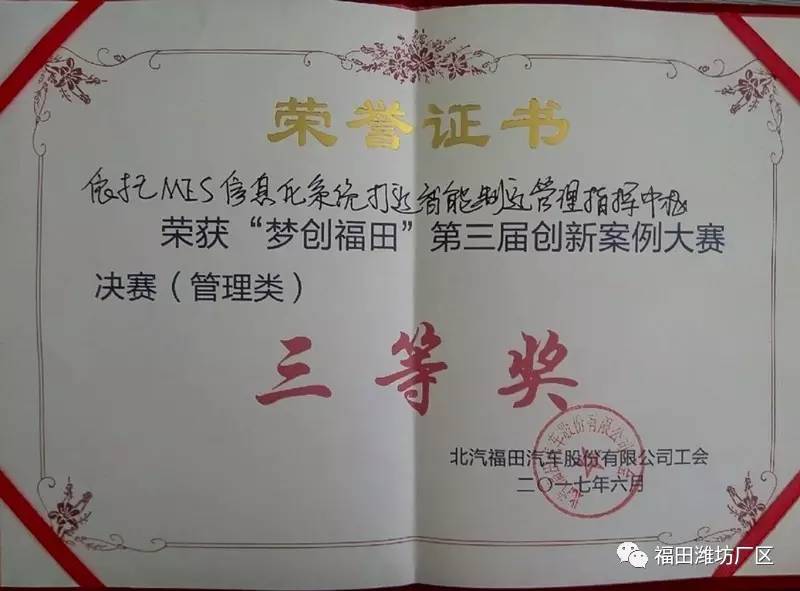 荣誉证书
依托MES信息化系统打造智能制造管理指挥中枢
荣获“梦创福田”第三届创新案例大赛
决赛（管理类）
三等奖
北汽福田汽车股份有限公司工会
二〇一七年六月
福田潍坊厂区